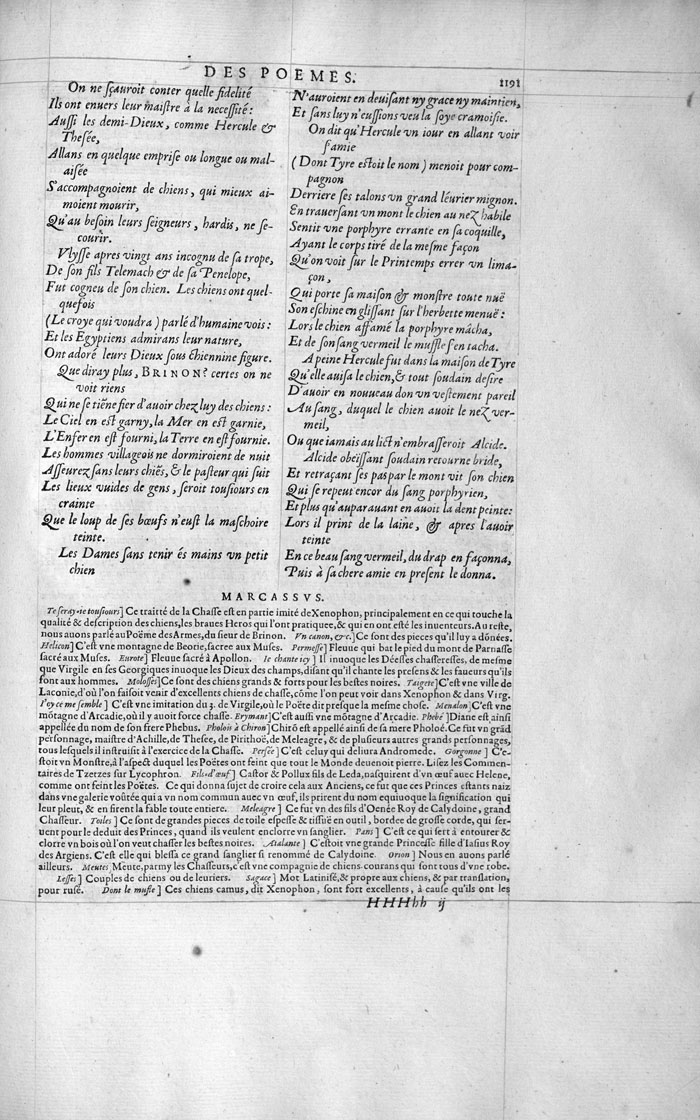 DES POEMES.
1191
On ne sçauroit conter quelle fidelité
Ils ont enuers leur maistre à la necessité:
Aussi les demi-Dieux, comme Hercule &
Thesée,
Allans en quelque emprise ou longue ou mal-
aisée
S'accompagnoient de chiens, qui mieux ai-
moient mourir,
Qu'au besoin leurs seigneurs, hardis, ne se-
courir.
Vlysse apres vingt ans incognu de sa trope,
De son fils Telemach & de sa Penelope,
Fut cogneu de son chien. Les chiens ont quel-
quefois
(Le croye qui voudra) parlé d'humaine vois:
Et les Egyptiens admirans leur nature,
Ont adoré leurs Dieux sous chiennine figure.
Que diray plus, BRINON? certes on ne
voit riens
Qui ne se tiẽne fier d'auoir chez luy des chiens:
Le Ciel en est garny, la Mer en est garnie,
L'Enfer en est fourni, la Terre en est fournie.
Les hommes villageois ne dormiroient de nuit
Asseurez sans leurs chiẽs, & le pasteur qui suit
Les lieux vuides de gens, seroit tousiours en
crainte
Que le loup de ses bœufs n'eust la maschoire
teinte.
Les Dames sans tenir és mains vn petit
chien
N'auroient en deuisant ny grace ny maintien,
Et sans luy n'eussions veu la soye cramoisie.
On dit qu'Hercule vn iour en allant voir
s'amie
(Dont Tyre estoit le nom) menoit pour com-
pagnon
Derriere ses talons vn grand léurier mignon.
En trauersant vn mont le chien au nez habile
Sentit vne porphyre errante en sa coquille,
Ayant le corps tiré de la mesme façon
Qu'on voit sur le Printemps errer vn lima-
çon,
Qui porte sa maison & monstre toute nuë
Son eschine en glissant sur l'herbette menuë:
Lors le chien affamé la porphyre mâcha,
Et de son sang vermeil le muffle s'en tacha.
A peine Hercule fut dans la maison de Tyre
Qu'elle auisa le chien, & tout soudain desire
D'auoir en nouueau don vn vestement pareil
Au sang, duquel le chien auoit le nez ver-
meil,
Ou que iamais au lict n'embrasseroit Alcide.
Alcide obeïssant soudain retourne bride,
Et retraçant ses pas par le mont vit son chien
Qui se repeut encor du sang porphyrien,
Et plus qu'auparauant en auoit la dent peinte:
Lors il print de la laine, & apres l'auoir
teinte
En ce beau sang vermeil, du drap en façonna,
Puis à sa chere amie en present le donna.
MARCASSVS.
Te seray-ie tousiours] Ce traitté de la Chasse est en partie imité de Xenophon, principalement en ce qui touche la
qualité & description des chiens, les braues Heros qui l'ont pratiquee, & qui en ont esté les inuenteurs. Au reste,
nous auons parlé au Poëme des Armes, du sieur de Brinon. Vn canon, &c.] Ce sont des pieces qu'il luy a dónées.
Helicon] C'est vne montagne de Beotie, sacree aux Muses. Permesse] Fleuue qui bat le pied du mont de Parnasse
sacré aux Muses. Eurote] Fleuue sacré à Apollon. Ie chante icy] Il inuoque les Déesses chasseresses, de mesme
que Virgile en ses Georgiques inuoque les Dieux des champs, disant qu'il chante les presens & les faueurs qu'ils
font aux hommes. Molosses] Ce sont des chiens grands & forts pour les bestes noires. Taigete] C'est vne ville de
Laconie, d'où l'on faisoit venir d'excellents chiens de chasse, cóme l'on peut voir dans Xenophon & dans Virg.
I'oy ce me semble] C'est vne imitation du 3. de Virgile, où le Poëte dit presque la mesme chose. Menalon] C'est vne
mótagne d'Arcadie, où il y auoit force chasse. Erymant] C'est aussi vne mótagne d'Arcadie. Phebé] Diane est ainsi
appellée du nom de son frere Phebus. Pholois à Chiron] Chirõ est appellé ainsi de sa mere Pholoé. Ce fut vn grãd
personnage, maistre d'Achille, de Thesee, de Pirithoë, de Meleagre, & de plusieurs autres grands personnages,
tous lesquels il instruisit à l'exercice de la Chasse. Persée] C'est celuy qui deliura Andromede. Gorgonne] C'e-
stoit vn Monstre, à l'aspect duquel les Poëtes ont feint que tout le Monde deuenoit pierre. Lisez les Commen-
taires de Tzetzes sur Lycophron. Fils-d'œuf] Castor & Pollux fils de Leda, nasquirent d'vn œuf auec Helene,
comme ont feint les Poëtes. Ce qui donna sujet de croire cela aux Anciens, ce fut que ces Princes estants naiz
dans vne galerie voûtée qui a vn nom commun auec vn œuf, ils prirent du nom equiuoque la signification qui
leur pleut, & en firent la fable toute entiere. Meleagre] Ce fut vn des fils d'Oenée Roy de Calydoine, grand
Chasseur. Toiles] Ce sont de grandes pieces de toile espesse & tissuë en outil, bordee de grosse corde, qui ser-
uent pour le deduit des Princes, quand ils veulent enclorre vn sanglier. Pans] C'est ce qui sert à entourer &
clorre vn bois où l'on veut chasser les bestes noires. Atalante] C'estoit vne grande Princesse fille d'Iasius Roy
des Argiens. C'est elle qui blessa ce grand sanglier si renommé de Calydoine. Orion] Nous en auons parlé
ailleurs. Meutes] Meute, parmy les Chasseurs, c'est vne compagnie de chiens courans qui sont tous d'vne robe.
Lesses] Couples de chiens ou de leuriers. Sagace] Mot Latinisé, & propre aux chiens, & par translation,
pour rusé. Dont le mufle] Ces chiens camus, dit Xenophon, sont fort excellents, à cause qu'ils ont les
HHHhh ij